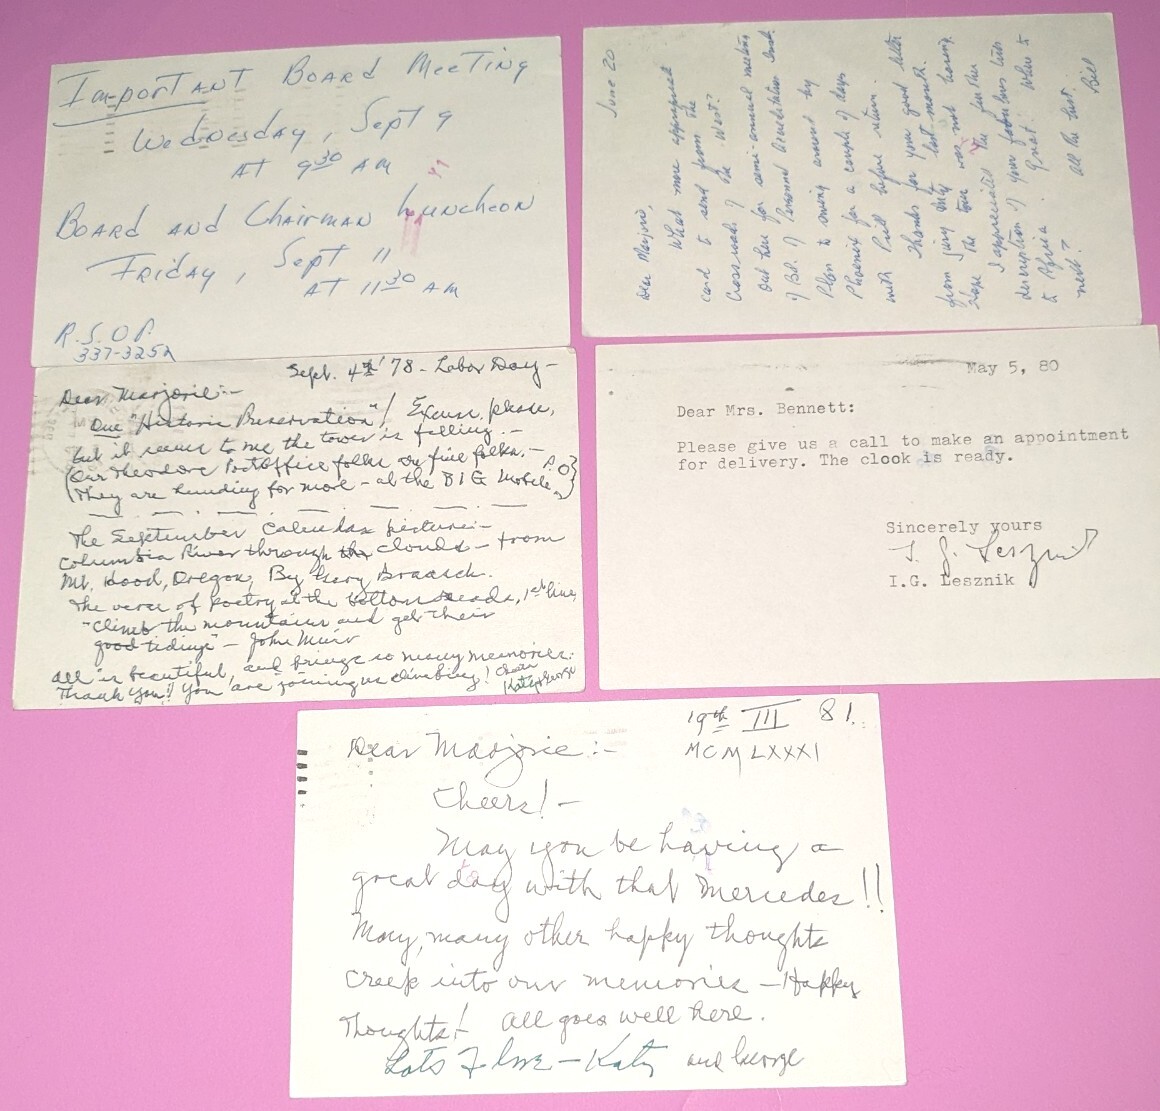 Important Board Meeting
Wednesday, Sept 9
AT 9:30 AM
Board and Chairman Luncheon
Friday, Sept 11
AT 11:30 AM
R.S.O.P.
337-3252
June 20
Dear Marjorie,
What more appropriate
card to send from the
Crossroads of the West?
Out here for semi-annual meeting
of Bd. of Personnel Accreditation Inst.
Plan to swing around by
Phoenix for a couple of days
with Prill before return.
Thanks for your good letter
from last month.
Hope the tour was not
I appreciated the further
description of your fabulous
to Africa. Great! Where to
next? All the best,
Bill
Sept. 4th '78 - Labor Day -
Dear Marjorie:-
Our "Historic Preservation"! Excuse, please,
but it seems to me the tower is falling. -
(Our Theodore PostOffice folks are fine folks. -
They are heading for more - at the BIG Mobile P.O.)
The September Calendar picture:-
Columbia River through the clouds - from
Mt. Hood, Oregon, By Gary Braasch.
The verse of poetry at the bottom reads, 1st line,
"Climb the mountains and get their
good tidings" - John Muir
All is beautiful, and brings so many memories.
Thank You!! You are joining us climbing!
Katy & George
May 5, 80
Dear Mrs. Bennett:
Please give us a call to make an appointment
for delivery. The clook is ready.
Sincerely yours
I. G. Lesznik
I.G. Lesznik
19th III 81.
MCMLXXXI
Dear Marjorie:-
Cheers! -
May you be having a
great day with that Mercedes!!
Many, many other happy thoughts
creep into our memories - Happy
Thoughts! All goes well here.
Lots of love - Katy and George